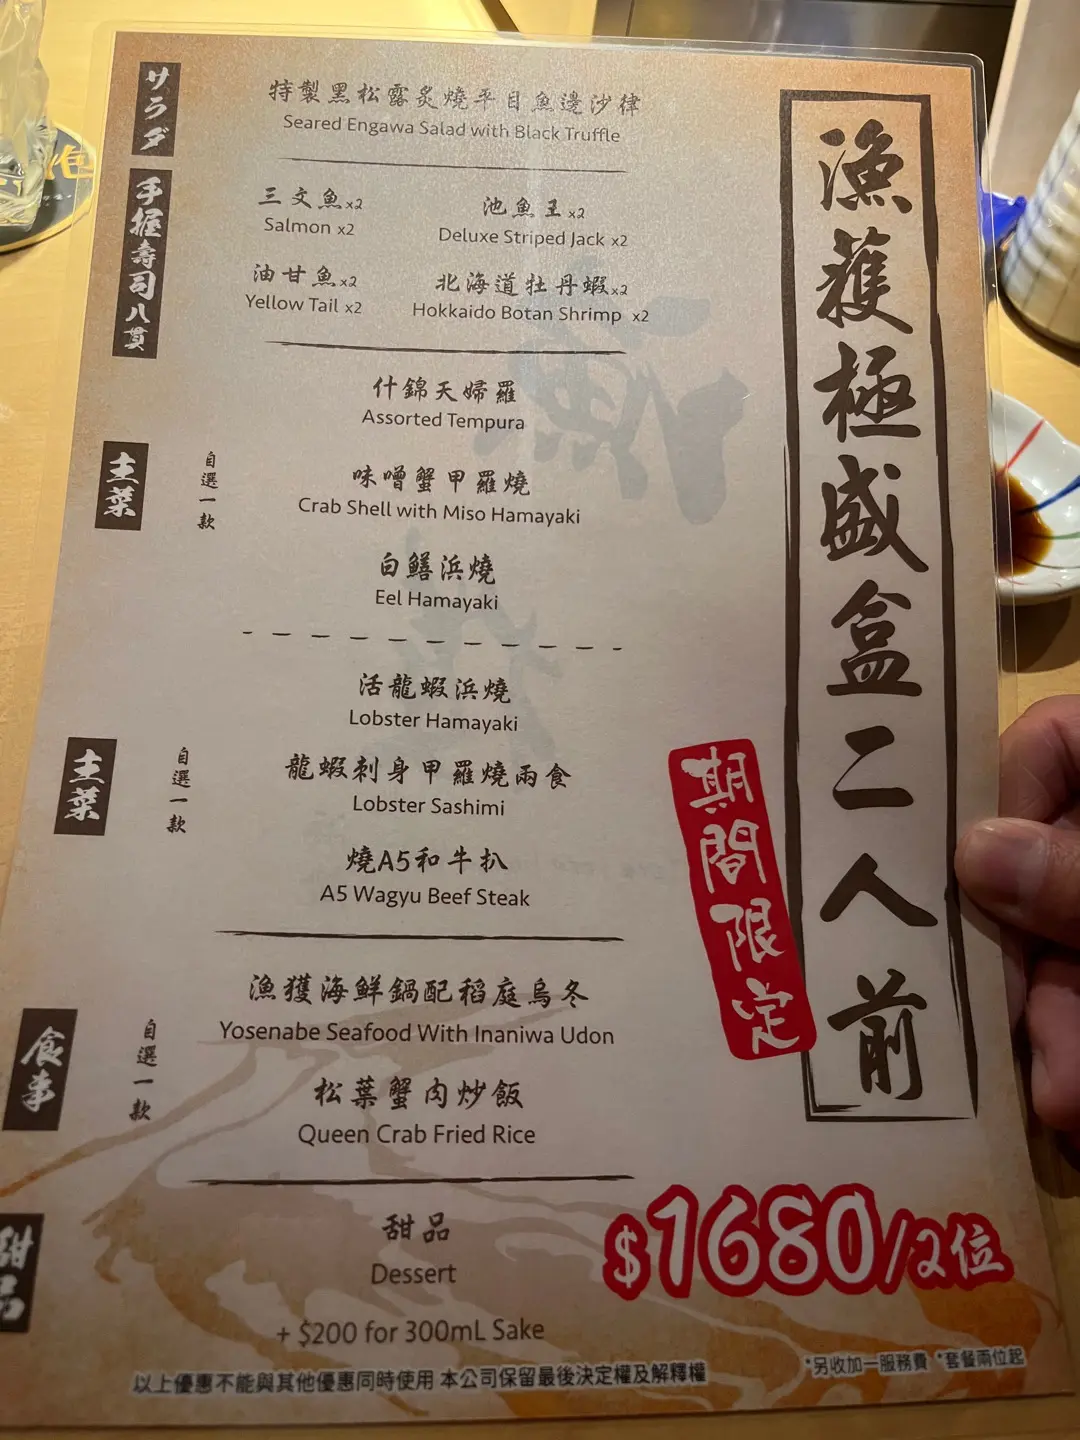 サラダ
特製黑松露炙燒平目魚邊沙律
Seared Engawa Salad with Black Truffle
手握壽司八貫
三文魚x2
Salmon x2
池魚王x2
Deluxe Striped Jack x2
油甘魚x2
Yellow Tail x2
北海道牡丹蝦x2
Hokkaido Botan Shrimp x2
主菜
自選一款
什錦天婦羅
Assorted Tempura
味噌蟹甲羅燒
Crab Shell with Miso Hamayaki
白鱔浜燒
Eel Hamayaki
主菜
自選一款
活龍蝦浜燒
Lobster Hamayaki
龍蝦刺身甲羅燒兩食
Lobster Sashimi
燒A5和牛扒
A5 Wagyu Beef Steak
食事
自選一款
漁獲海鮮鍋配稻庭烏冬
Yosenabe Seafood With Inaniwa Udon
松葉蟹肉炒飯
Queen Crab Fried Rice
甜品
甜品
Dessert
+ $200 for 300mL Sake
漁獲極盛盒二人前
期間限定
$1680/2位
*另收加一服務費 *套餐兩位起
以上優惠不能與其他優惠同時使用 本公司保留最後決定權及解釋權